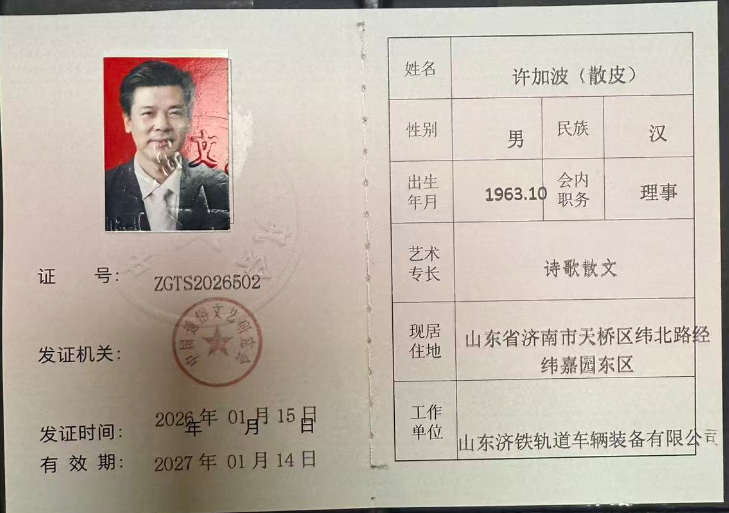 证 号： ZGTS2026502
发证机关：
中国通俗文艺研究会
发证时间： 2026年 01月 15日
年 月 日
有 效 期： 2027年 01月 14日
姓名 许加波（散皮）
性别 男 民族 汉
出生年月 1963.10 会内职务 理事
艺术专长 诗歌散文
现居住地 山东省济南市天桥区纬北路经
纬嘉园东区
工作单位 山东济铁轨道车辆装备有限公司